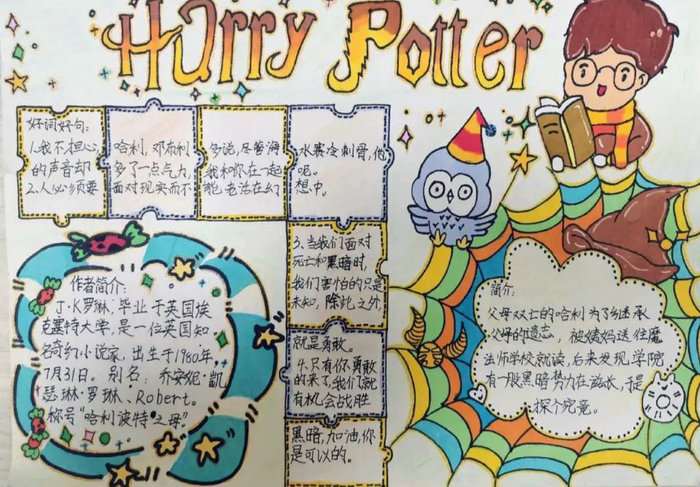 Harry Potter
好词好句:
1.我不担心,
的声音却
2.人必须要
哈利,邓布利
多了一点气力,
面对现实而不
多说,尽管海
我和你在一起
能老活在幻
水寒冷刺骨,他
呢。
想中。
3.当我们面对
死亡和黑暗时,
我们害怕的只是
未知,除此之外,
就是勇敢。
4.只有你勇敢
的来了,我们就
有机会战胜
黑暗,加油,你
是可以的。
作者简介:
J·K罗琳,毕业于英国埃
克塞特大学,是一位英国知
名奇幻小说家,出生于1960年
7月31日。别名:乔安妮·凯
瑟琳·罗琳、Robert。
称号“哈利波特之母”
简介:
父母双亡的哈利为了继承
父母的遗志,被姨妈送住魔
法师学校就读,后来发现学院
有一股黑暗势力在滋长,于是
探个究竟。